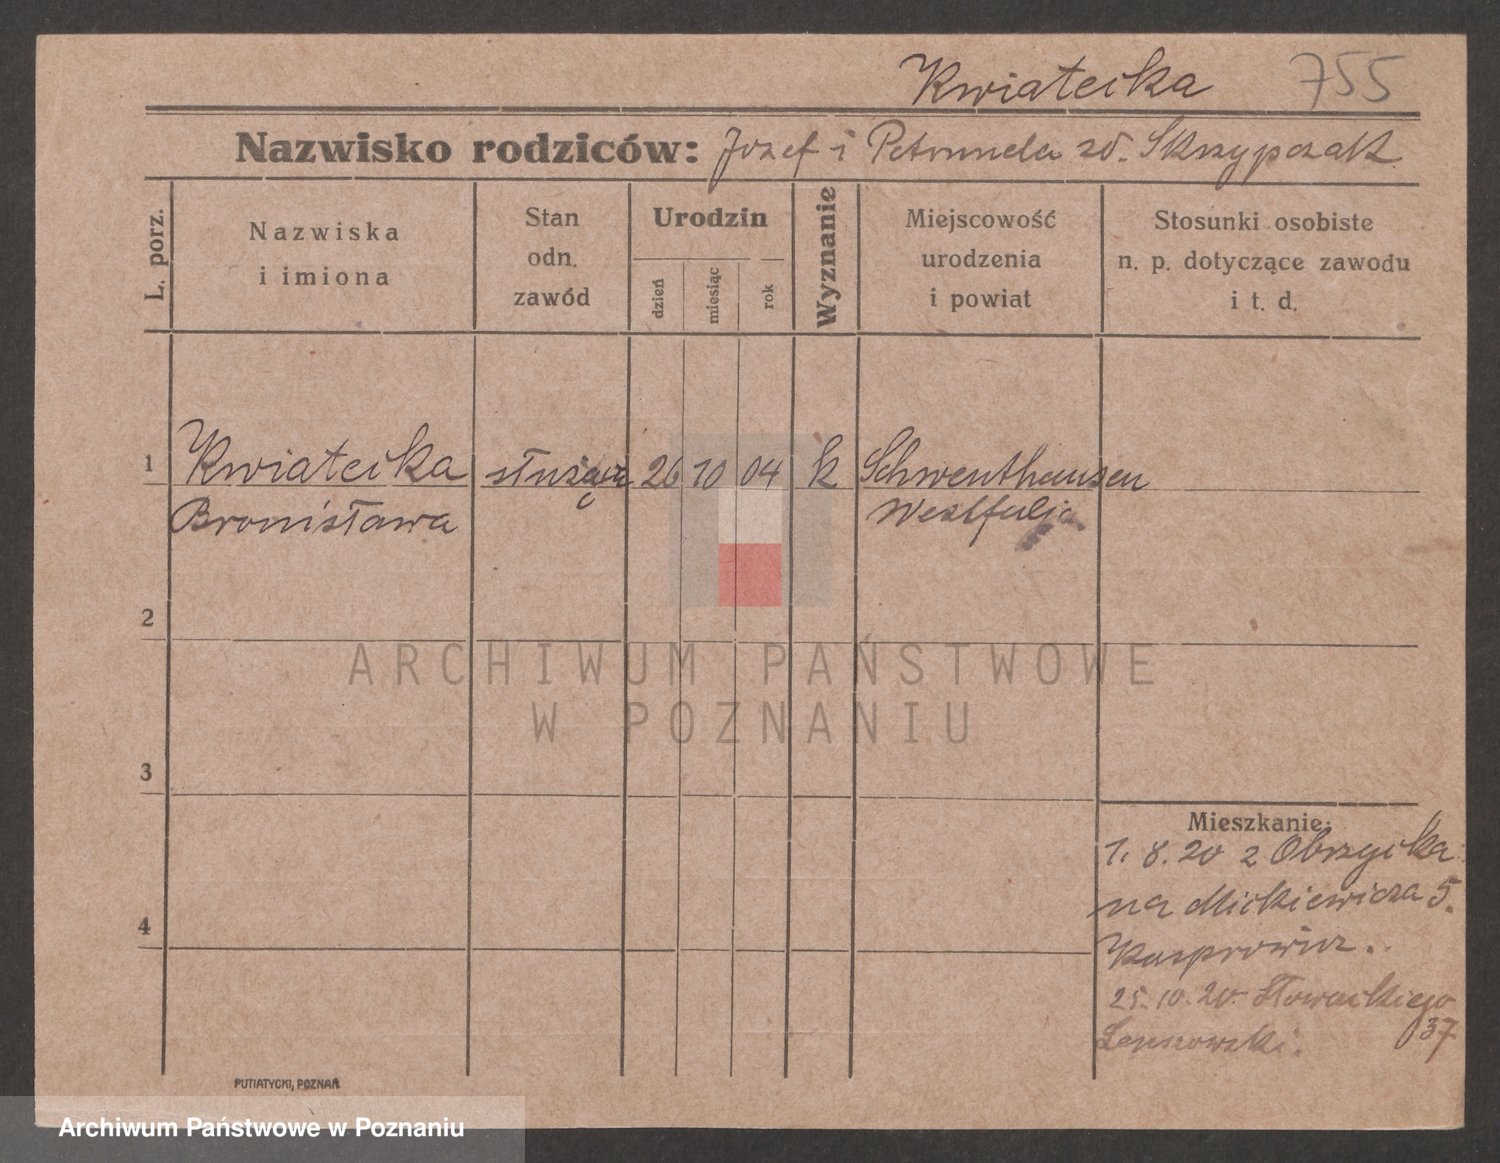 Kwiatecka 755
Nazwisko rodziców: Jozef i Petronela zd. Skrzypczak
L. porz.
Nazwiska
i imiona
Stan
odn.
zawód
Urodzin
dzień
miesiąc
rok
Wyznanie
Miejscowość
urodzenia
i powiat
Stosunki osobiste
n. p. dotyczące zawodu
i t. d.
1 Kwiatecka służąca 26 10 04 k Schwenthausen
Bronisława Westfalja
2
3
4
Mieszkanie:
1. 8. 20 z Obrzycka
na Mickiewicza 5.
Kasprowicz.
25. 10. 20. Słowackiego
37
PUTIATYCKI, POZNAŃ
ARCHIWUM PAŃSTWOWE
W POZNANIU
Archiwum Państwowe w Poznaniu